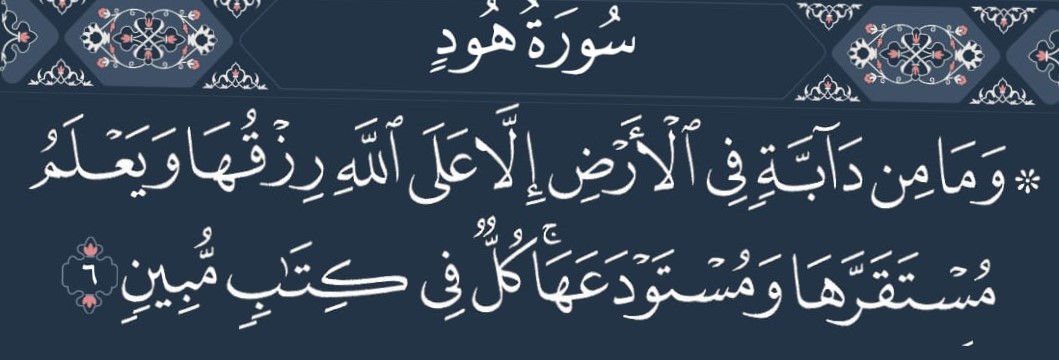 سُورَةُ هُودٍ
۞ وَمَا مِن دَآبَّةٍ فِى ٱلْأَرْضِ إِلَّا عَلَى ٱللَّهِ رِزْقُهَا وَيَعْلَمُ
مُسْتَقَرَّهَا وَمُسْتَوْدَعَهَا ۚ كُلٌّ فِى كِتَـٰبٍ مُّبِينٍ ٦